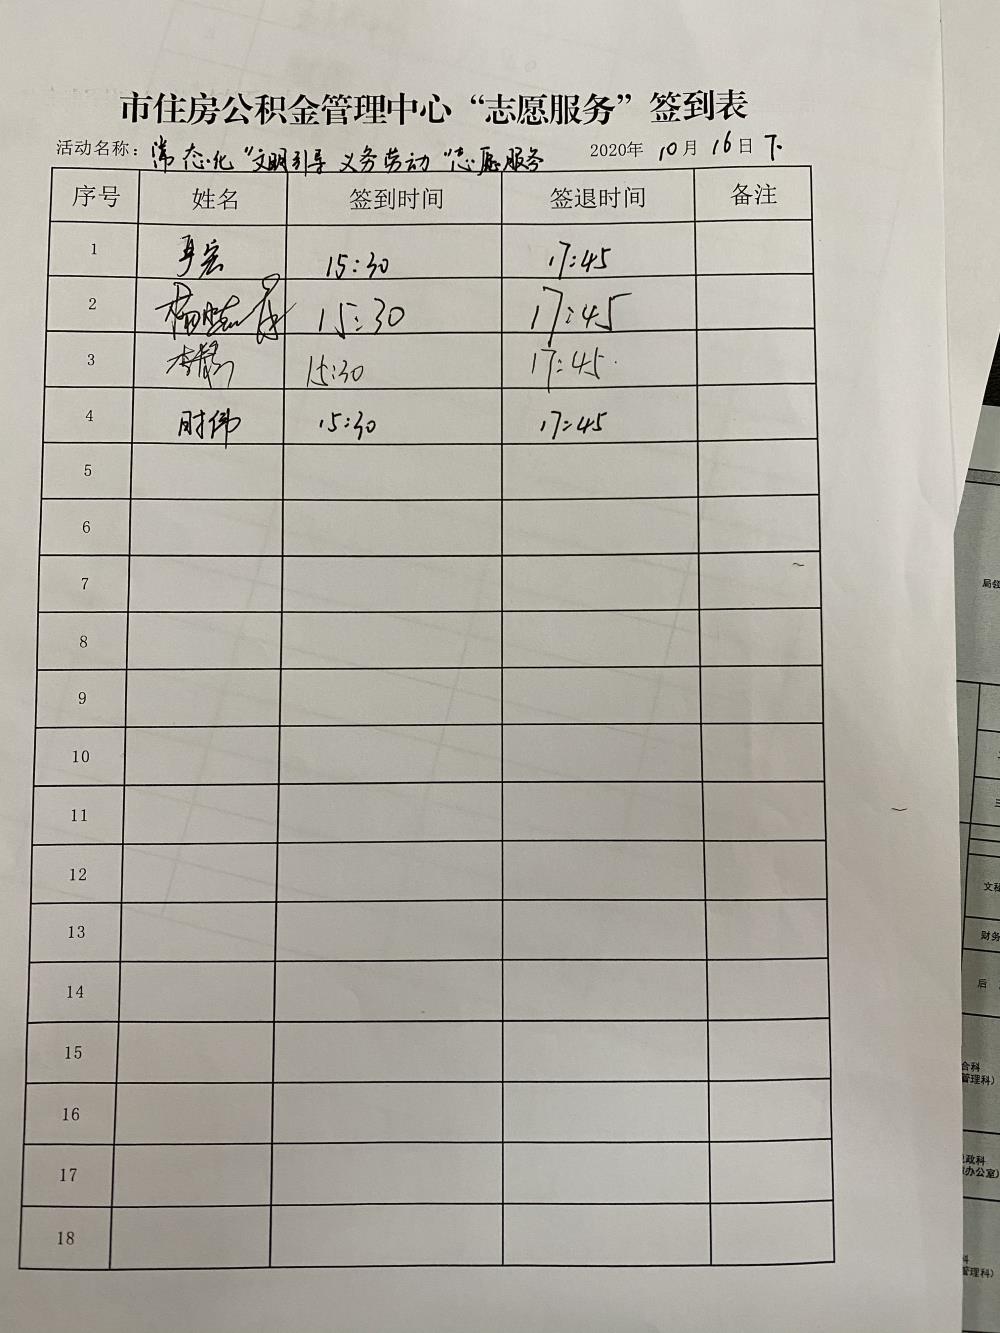 市住房公积金管理中心“志愿服务”签到表
活动名称：常态化“文明引导 义务劳动”志愿服务 2020年 10月 16日 下
序号 姓名 签到时间 签退时间 备注
1 15:30 17:45
2 15:30 17:45
3 15:30 17:45
4 时伟 15:30 17:45
5
6
7
8
9
10
11
12
13
14
15
16
17
18
局领
文秘
财务
后
合科
管理科）
政科
办公室）
科
管理科）